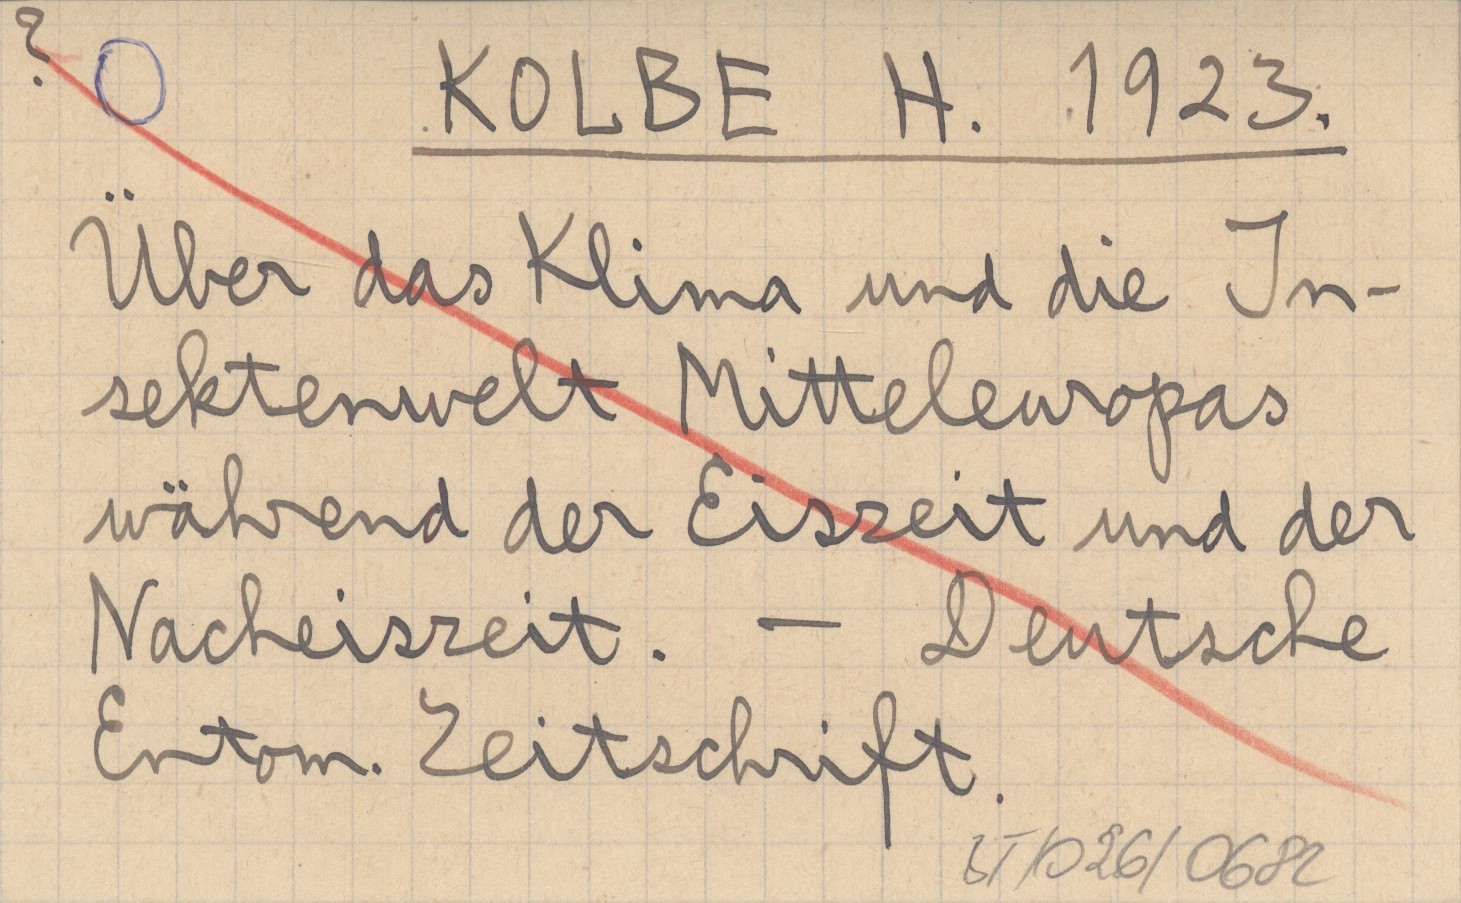 ?
KOLBE H. 1923.
Über das Klima und die In-
sektenwelt Mitteleuropas
während der Eiszeit und der
Nacheiszeit. — Deutsche
Entom. Zeitschrift.
/D26/0682